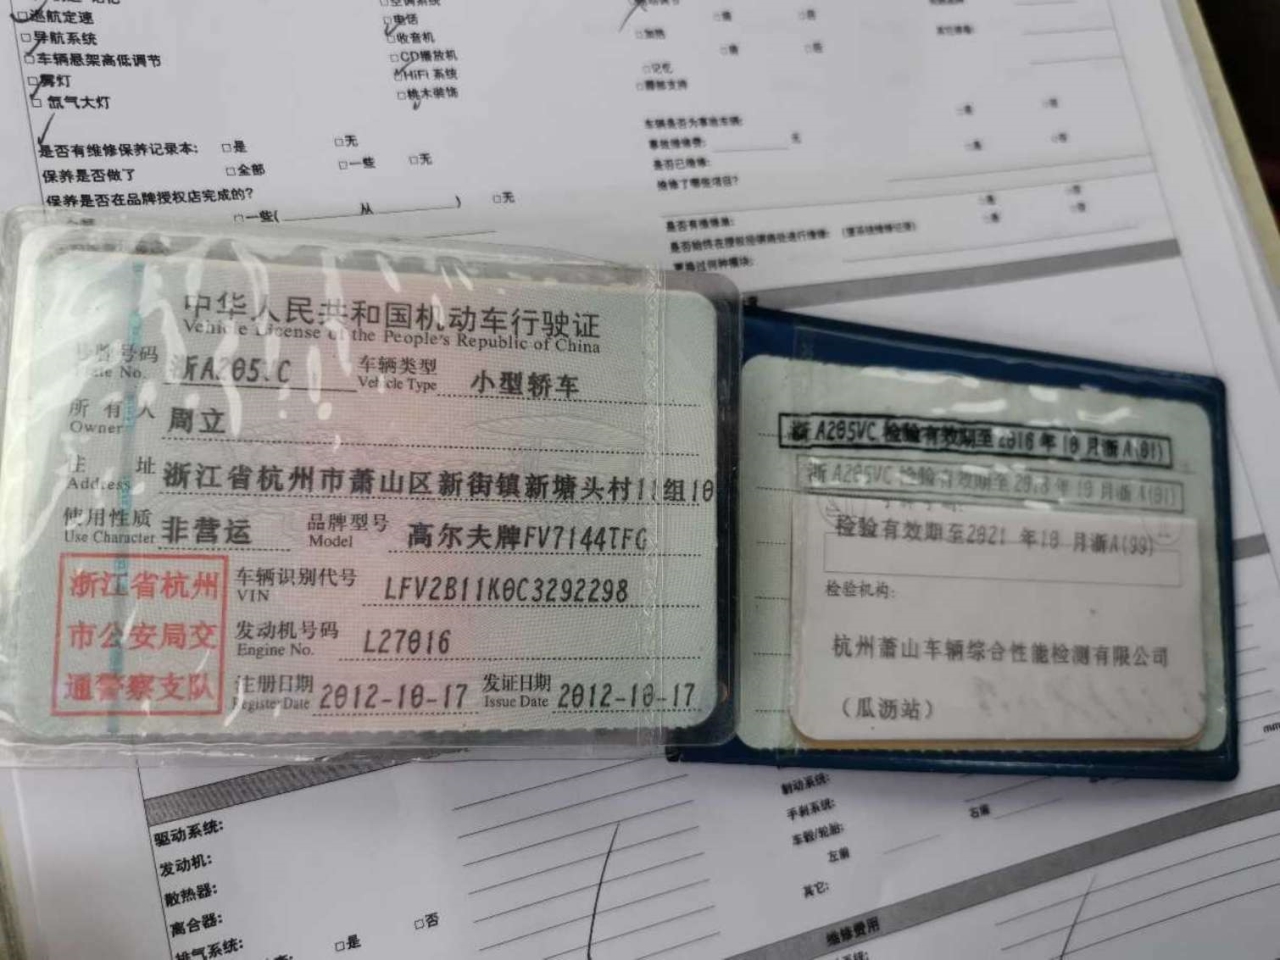 □巡航定速
□导航系统
□车辆悬架高低调节
□雾灯
□氙气大灯
□空调系统
□电话
□收音机
□CD播放机
□HiFi 系统
□桃木装饰
□加热
□记忆
□腰部支持
是否有维修保养记录本: □是 □无
保养是否做了 □全部 □一些 □无
保养是否在品牌授权店完成的?
□一些( 从 ) □无
车辆是否为事故车辆:
事故维修费: 元
是否已维修:
维修了哪些项目?
是否有维修单:
中华人民共和国机动车行驶证
Vehicle License of the People's Republic of China
号牌号码 浙A205VC 车辆类型 小型轿车
Plate No. Vehicle Type
所有人 周立
Owner
住址 浙江省杭州市萧山区新街镇新塘头村11组10
Address
使用性质 非营运 品牌型号 高尔夫牌FV7144TFG
Use Character Model
浙江省杭州
市公安局交
通警察支队
车辆识别代号 LFV2B11K0C3292298
VIN
发动机号码 L27016
Engine No.
注册日期 2012-10-17 发证日期 2012-10-17
Register Date Issue Date
浙A205VC 检验有效期至2016年10月浙A(01)
浙A205VC 检验有效期至2018年10月浙A(01)
检验有效期至2021 年10 月浙A(99)
检验机构:
杭州萧山车辆综合性能检测有限公司
（瓜沥站）
驱动系统:
发动机:
散热器:
离合器:
排气系统:
□是 □否
制动系统:
手刹系统:
车毂/轮胎:
左前
右前
其它:
维修费用